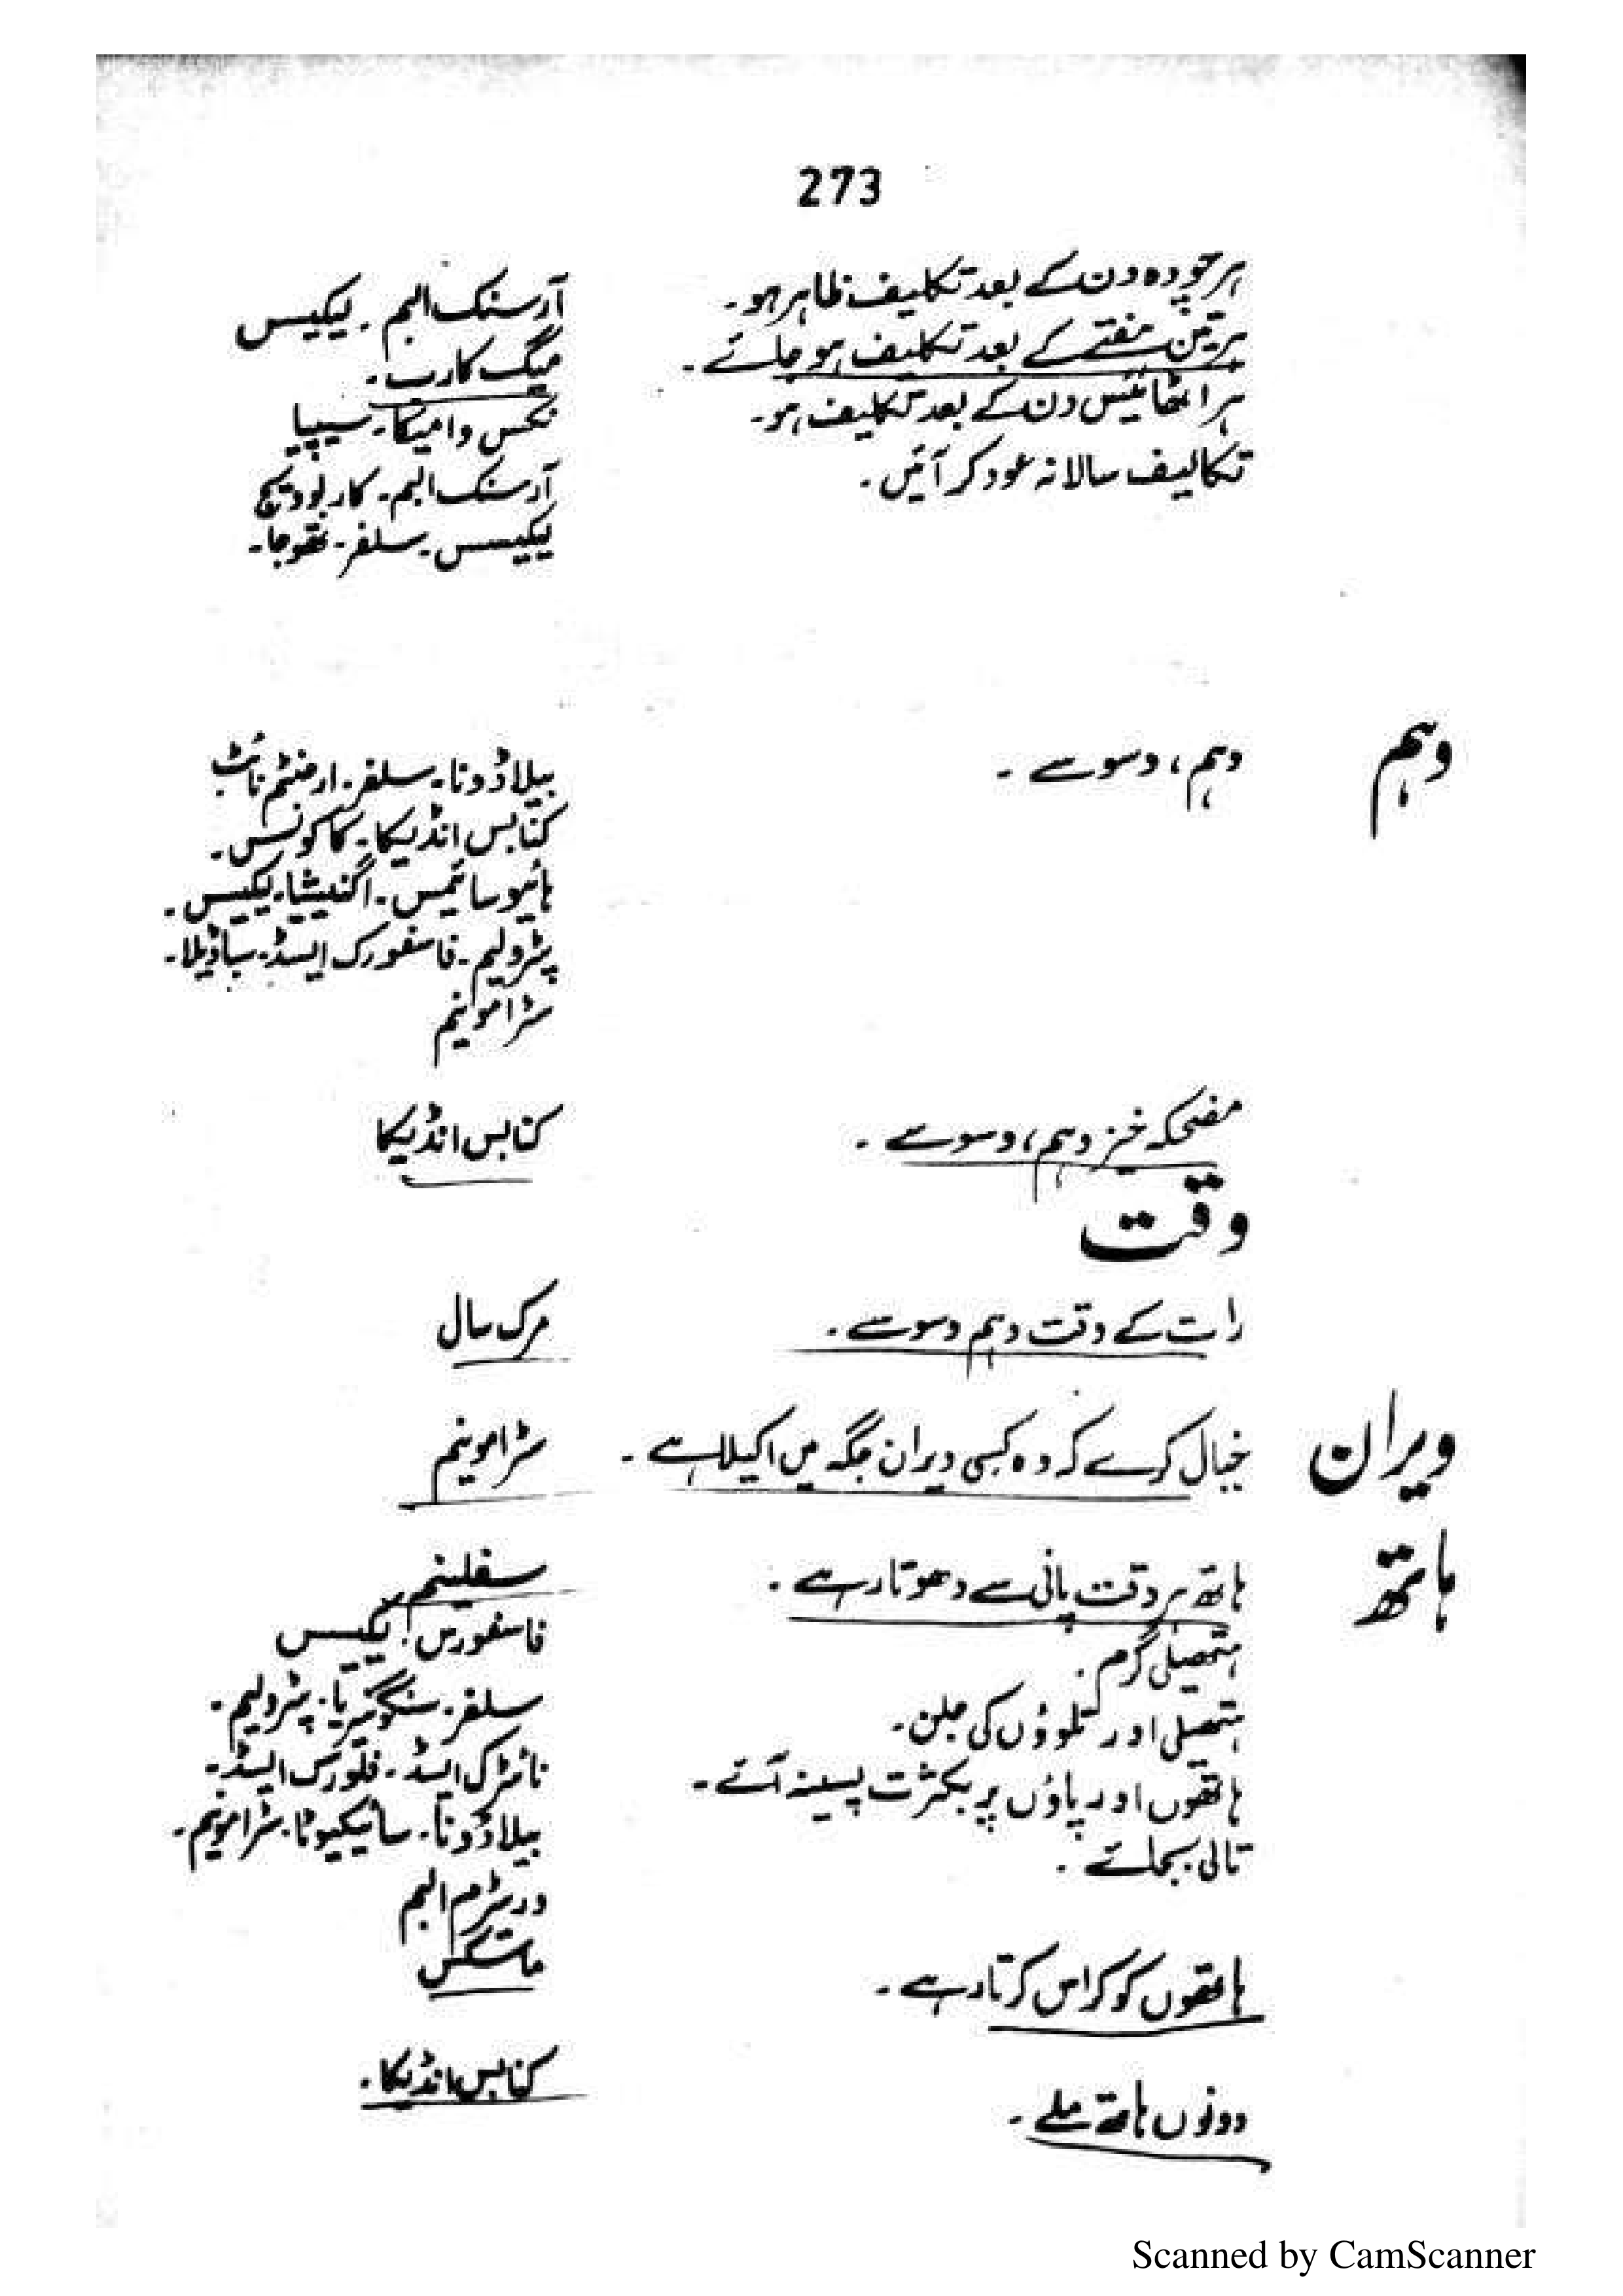 273
ہر چودہ دن کے بعد تکلیف ظاہر ہو۔
آرسنک البم۔ لیکیسس
ہر تین ہفتے کے بعد تکلیف ہو جائے۔
میگ کارب۔
ہر اٹھائیس دن کے بعد تکلیف ہو۔
نکس وامیکا۔ سیپیا
تکالیف سالانہ عود کر آئیں۔
آرسنک البم۔ کاربوویج
لیکیسس۔ سلفر۔ تھوجا۔
وہم
وہم، وسوسے۔
بیلاڈونا۔ سلفر۔ ارجنٹم نائٹ
کنابس انڈیکا۔ کاکولس۔
ہائیوسائمس۔ اگنیشیا۔ لیکیسس۔
پٹرولیم۔ فاسفورک ایسڈ۔ سباڈیلا۔
سٹرامونیم
مضحکہ خیز وہم، وسوسے۔
کنابس انڈیکا
وقت
رات کے وقت وہم وسوسے۔
مرک سال
ویران
خیال کرے کہ وہ کسی ویران جگہ میں اکیلا ہے۔
سٹرامونیم
ہاتھ
ہاتھ ہر وقت پانی سے دھوتا رہے۔
سفلینم
ہتھیلی گرم۔
فاسفورس۔ لیکیسس
ہتھیلی اور تلوؤں کی جلن۔
سلفر۔ سنگونیریا۔ پٹرولیم۔
ہاتھوں اور پاؤں پر بکثرت پسینہ آئے۔
نائٹرک ایسڈ۔ فلورک ایسڈ۔
تالی بجائے۔
بیلاڈونا۔ سائیکیوٹا۔ سٹرامونیم۔
وریٹرم البم
ہاتھوں کو کراس کرتا رہے۔
ماسکس
دونوں ہاتھ ملے۔
کنابس انڈیکا۔
Scanned by CamScanner